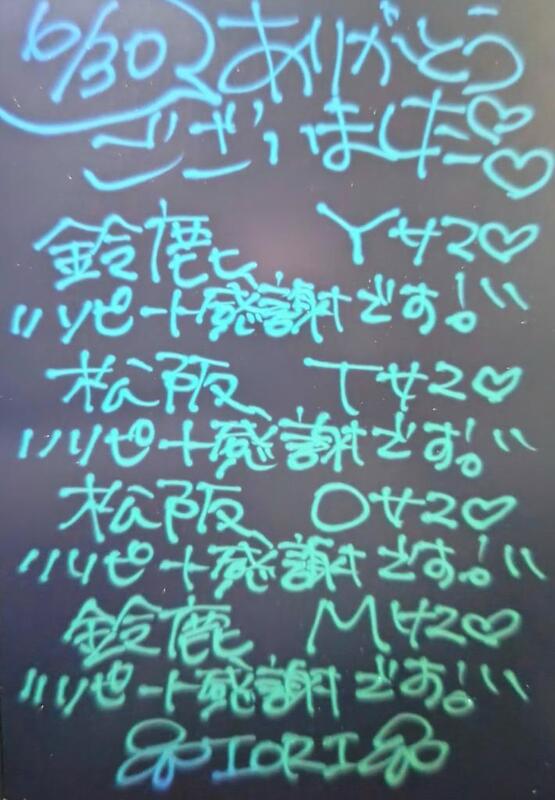 6/30 ありがとう
ございました♡♡
鈴鹿 Yサマ♡
"リピート感謝です!"
松阪 Tサマ♡
"リピート感謝です!"
松阪 Oサマ♡
"リピート感謝です!"
鈴鹿 Mサマ♡
"リピート感謝です!"
IORI